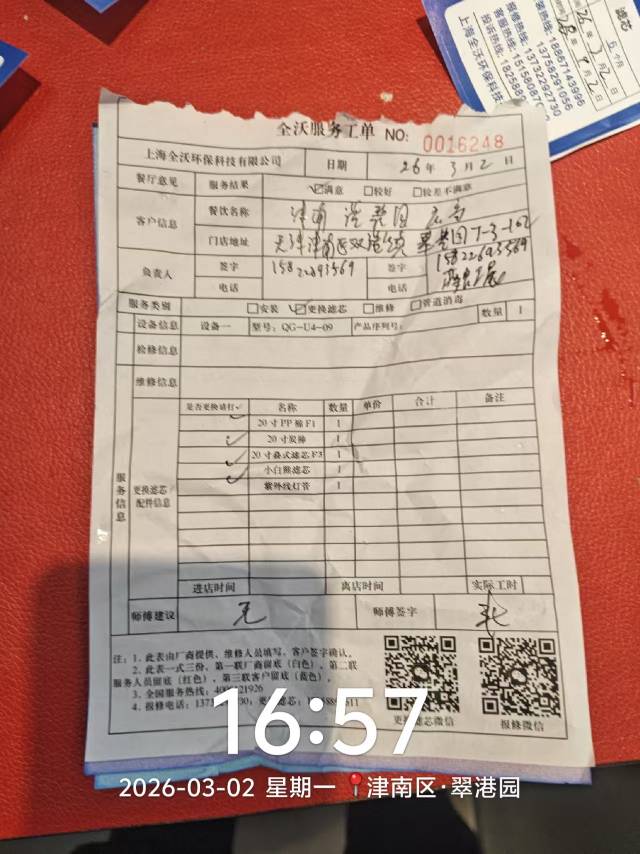 滤芯
6个月
26年3月2日
上海全沃环保科技
客服热线: 18867143996
13758291056
报修热线: 13732292730
投诉热线: 15158087
全沃服务工单 NO: 0016248
上海全沃环保科技有限公司 日期 26年3月2日
餐厅意见 服务结果 ☑满意 □较好 □较差不满意
客户信息 餐饮名称 津南
门店地址 天津津南区双港镇翠港园7-3-102
负责人 签字 15822693569 签字 15822693569
电话 电话
服务类别 □安装 ☑更换滤芯 □维修 □管道消毒
设备信息 设备一 型号: QG-U4-09 产品序列号: 数量 1
检修信息
维修信息
服务信息
更换滤芯配件信息
是否更换请打✓ 名称 数量 单价 合计 备注
✓ 20寸PP棉F1 1
✓ 20寸炭棒 1
✓ 20寸叠式滤芯F3 1
✓ 小白熊滤芯 1
紫外线灯管 1
进店时间 离店时间 实际工时
师傅建议 无 师傅签字
注: 1. 此表由厂商提供、维修人员填写、客户签字确认。
2. 此表一式三份、第一联厂商留底(白色)、第二联
服务人员留底(红色)、第三联客户留底(蓝色)。
3. 全国服务热线: 400 21926
4. 报修电话: 1373 30; 更
更换滤芯微信 报修微信
16:57
2026-03-02 星期一 津南区·翠港园